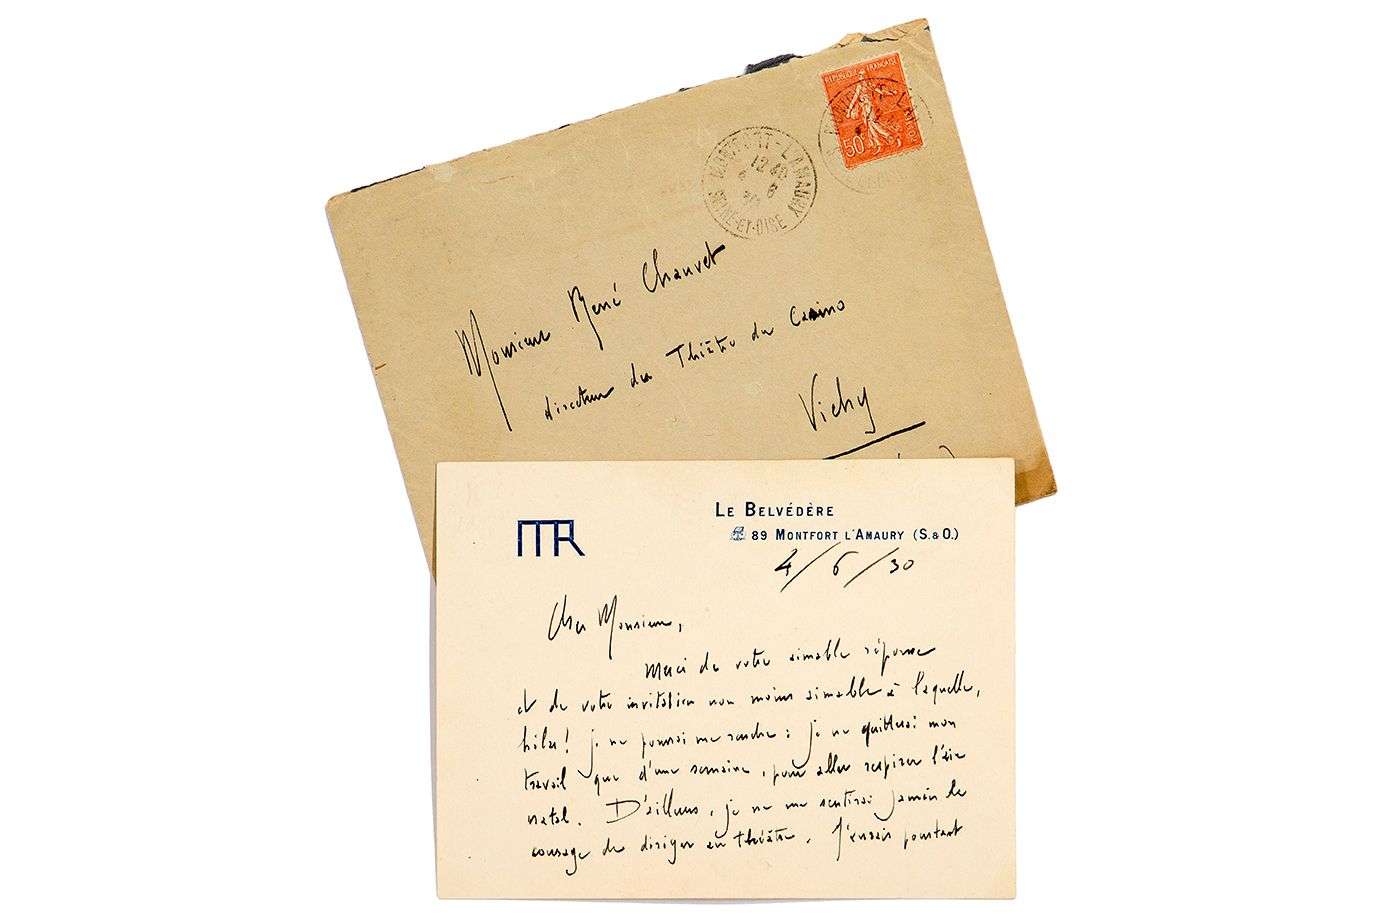 REPUBLIQUE FRANÇAISE
50
MONTFORT-L'AMAURY
12 40
SEINE-ET-OISE
Monsieur René Chauvet
directeur du Théâtre du Casino
Vichy
MR
LE BELVÉDÈRE
89 MONTFORT L'AMAURY (S.&O.)
4/6/30
Cher Monsieur,
Merci de votre aimable réponse
et de votre invitation non moins aimable à laquelle,
hélas! je ne pourrai me rendre : je ne quitterai mon
travail que d'une semaine, pour aller respirer l'air
natal. D'ailleurs, je ne me sentirai jamais le
courage de diriger au théâtre. J'aurais pourtant